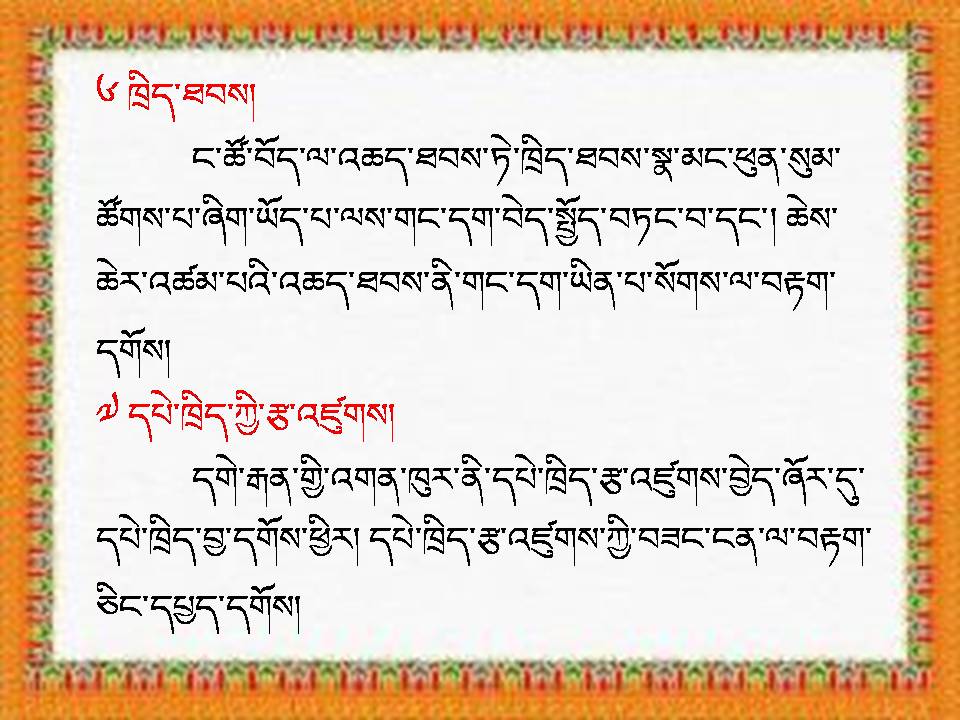 ༦ ཁྲིད་ཐབས།
ང་ཚོ་བོད་ལ་འཆད་ཐབས་ཏེ་ཁྲིད་ཐབས་སྣ་མང་ཕུན་སུམ་
ཚོགས་པ་ཞིག་ཡོད་པ་ལས་གང་དག་བེད་སྤྱོད་བཏང་བ་དང་། ཆེས་
ཆེར་འཚམ་པའི་འཆད་ཐབས་ནི་གང་དག་ཡིན་པ་སོགས་ལ་བརྟག་
དགོས།
༧ དཔེ་ཁྲིད་ཀྱི་རྩ་འཛུགས།
དགེ་རྒན་གྱི་འགན་ཁུར་ནི་དཔེ་ཁྲིད་རྩ་འཛུགས་བྱེད་ཞོར་དུ་
དཔེ་ཁྲིད་བྱ་དགོས་ཕྱིར། དཔེ་ཁྲིད་རྩ་འཛུགས་ཀྱི་བཟང་ངན་ལ་བརྟག་
ཅིང་དཔྱད་དགོས།